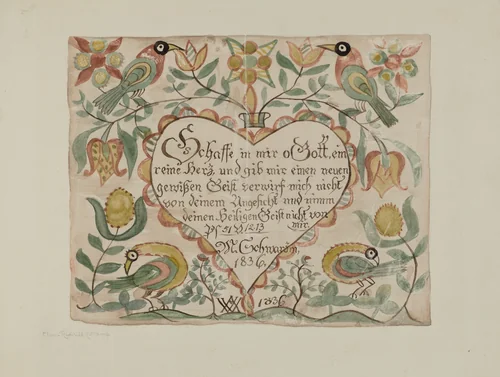 Schaffe in mir o Gott, ein
reine Herz, und gib mir einen neuen
gewißen Geist verwirf mich nicht
von deinem Angesicht und nimm
deinen Heiligen Geist nicht von
mir.
Ps 51
1836.
1836